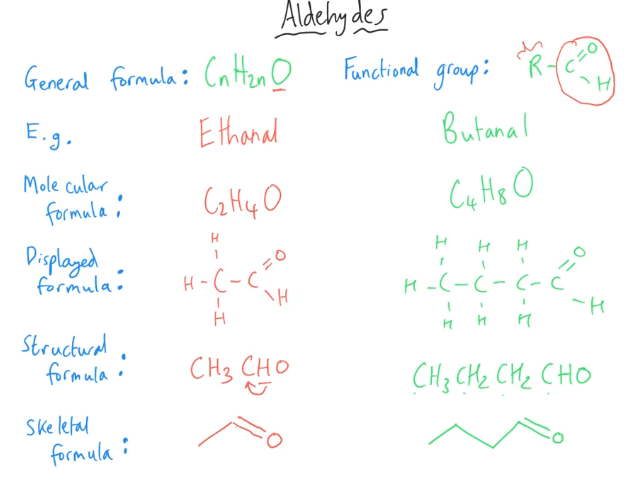 Aldehydes
General formula: CnH2nO
Functional group: R-C=O
H
E.g. Ethanal Butanal
Molecular formula: C2H4O C4H8O
Displayed formula:
H H H H
H-C-C=O H-C-C-C-C=O
H H H H H H
Structural formula: CH3 CHO CH3 CH2 CH2 CHO
Skeletal formula: O O